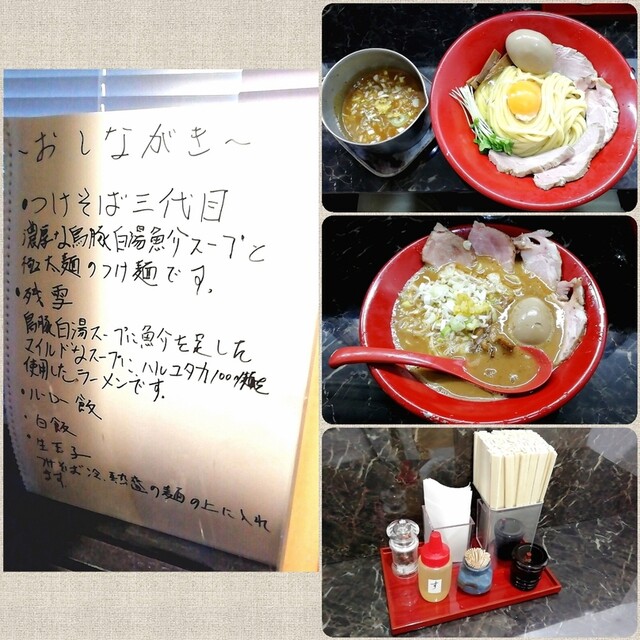 ~おしながき~
・つけそば三代目
濃厚な鳥豚白湯魚介スープと
極太麺のつけ麺です。
・残雪
鳥豚白湯スープに魚介を足した
マイルドなスープに、ハルユタカ100%麺を
使用したラーメンです。
・ルーロー飯
・白飯
・生玉子
冷、熱盛の麺の上に入れ
ます
す